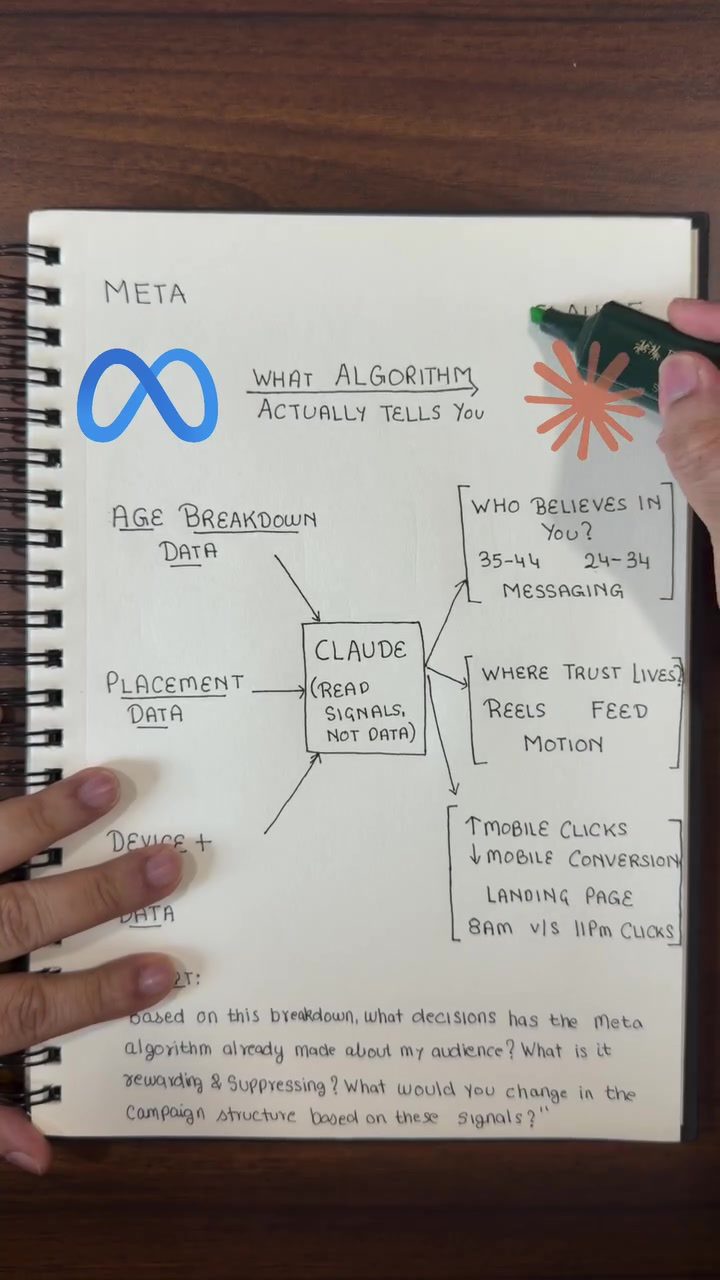 META
WHAT ALGORITHM
ACTUALLY TELLS YOU
AGE BREAKDOWN
DATA
PLACEMENT
DATA
DEVICE +
DATA
CLAUDE
(READ
SIGNALS,
NOT DATA)
WHO BELIEVES IN
YOU?
35-44 24-34
MESSAGING
WHERE TRUST LIVES?
REELS FEED
MOTION
↑MOBILE CLICKS
↓MOBILE CONVERSION
LANDING PAGE
8AM V/S 11PM CLICKS
Based on this breakdown, what decisions has the Meta
algorithm already made about my audience? What is it
rewarding & Suppressing? What would you change in the
campaign structure based on these signals?"